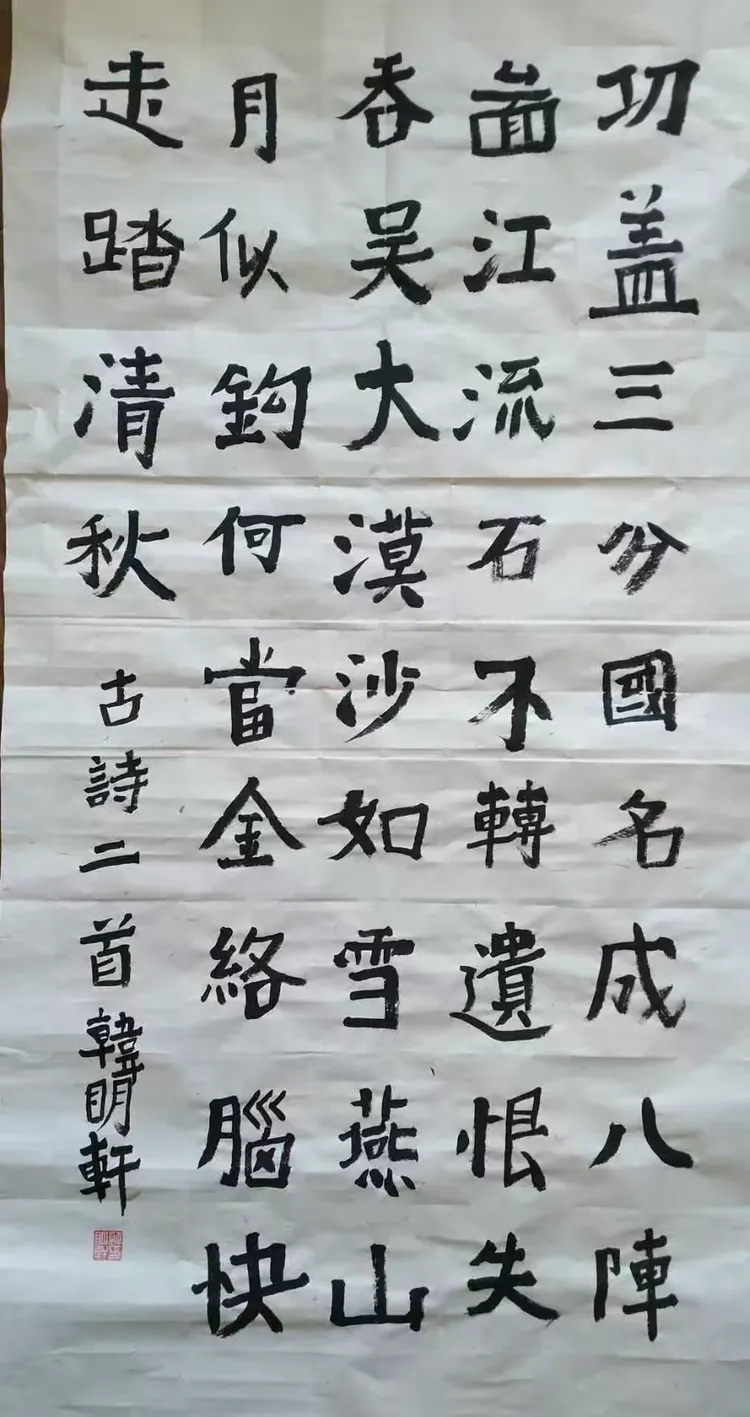 功盖三分國名成八陣
啚江流石不轉遺恨失
吞吴大漠沙如雪燕山
月似鈎何當金絡腦快
走踏清秋
古詩二首韓明軒